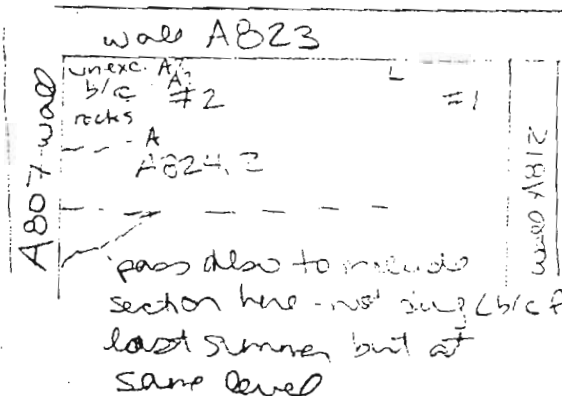 wall A823
unexc. A?
b/c A?
rocks #2
#1
A807 wall
A
A824.2
wall A812
pass also to include
section here - not dug (b/c of
last summer but at
same level